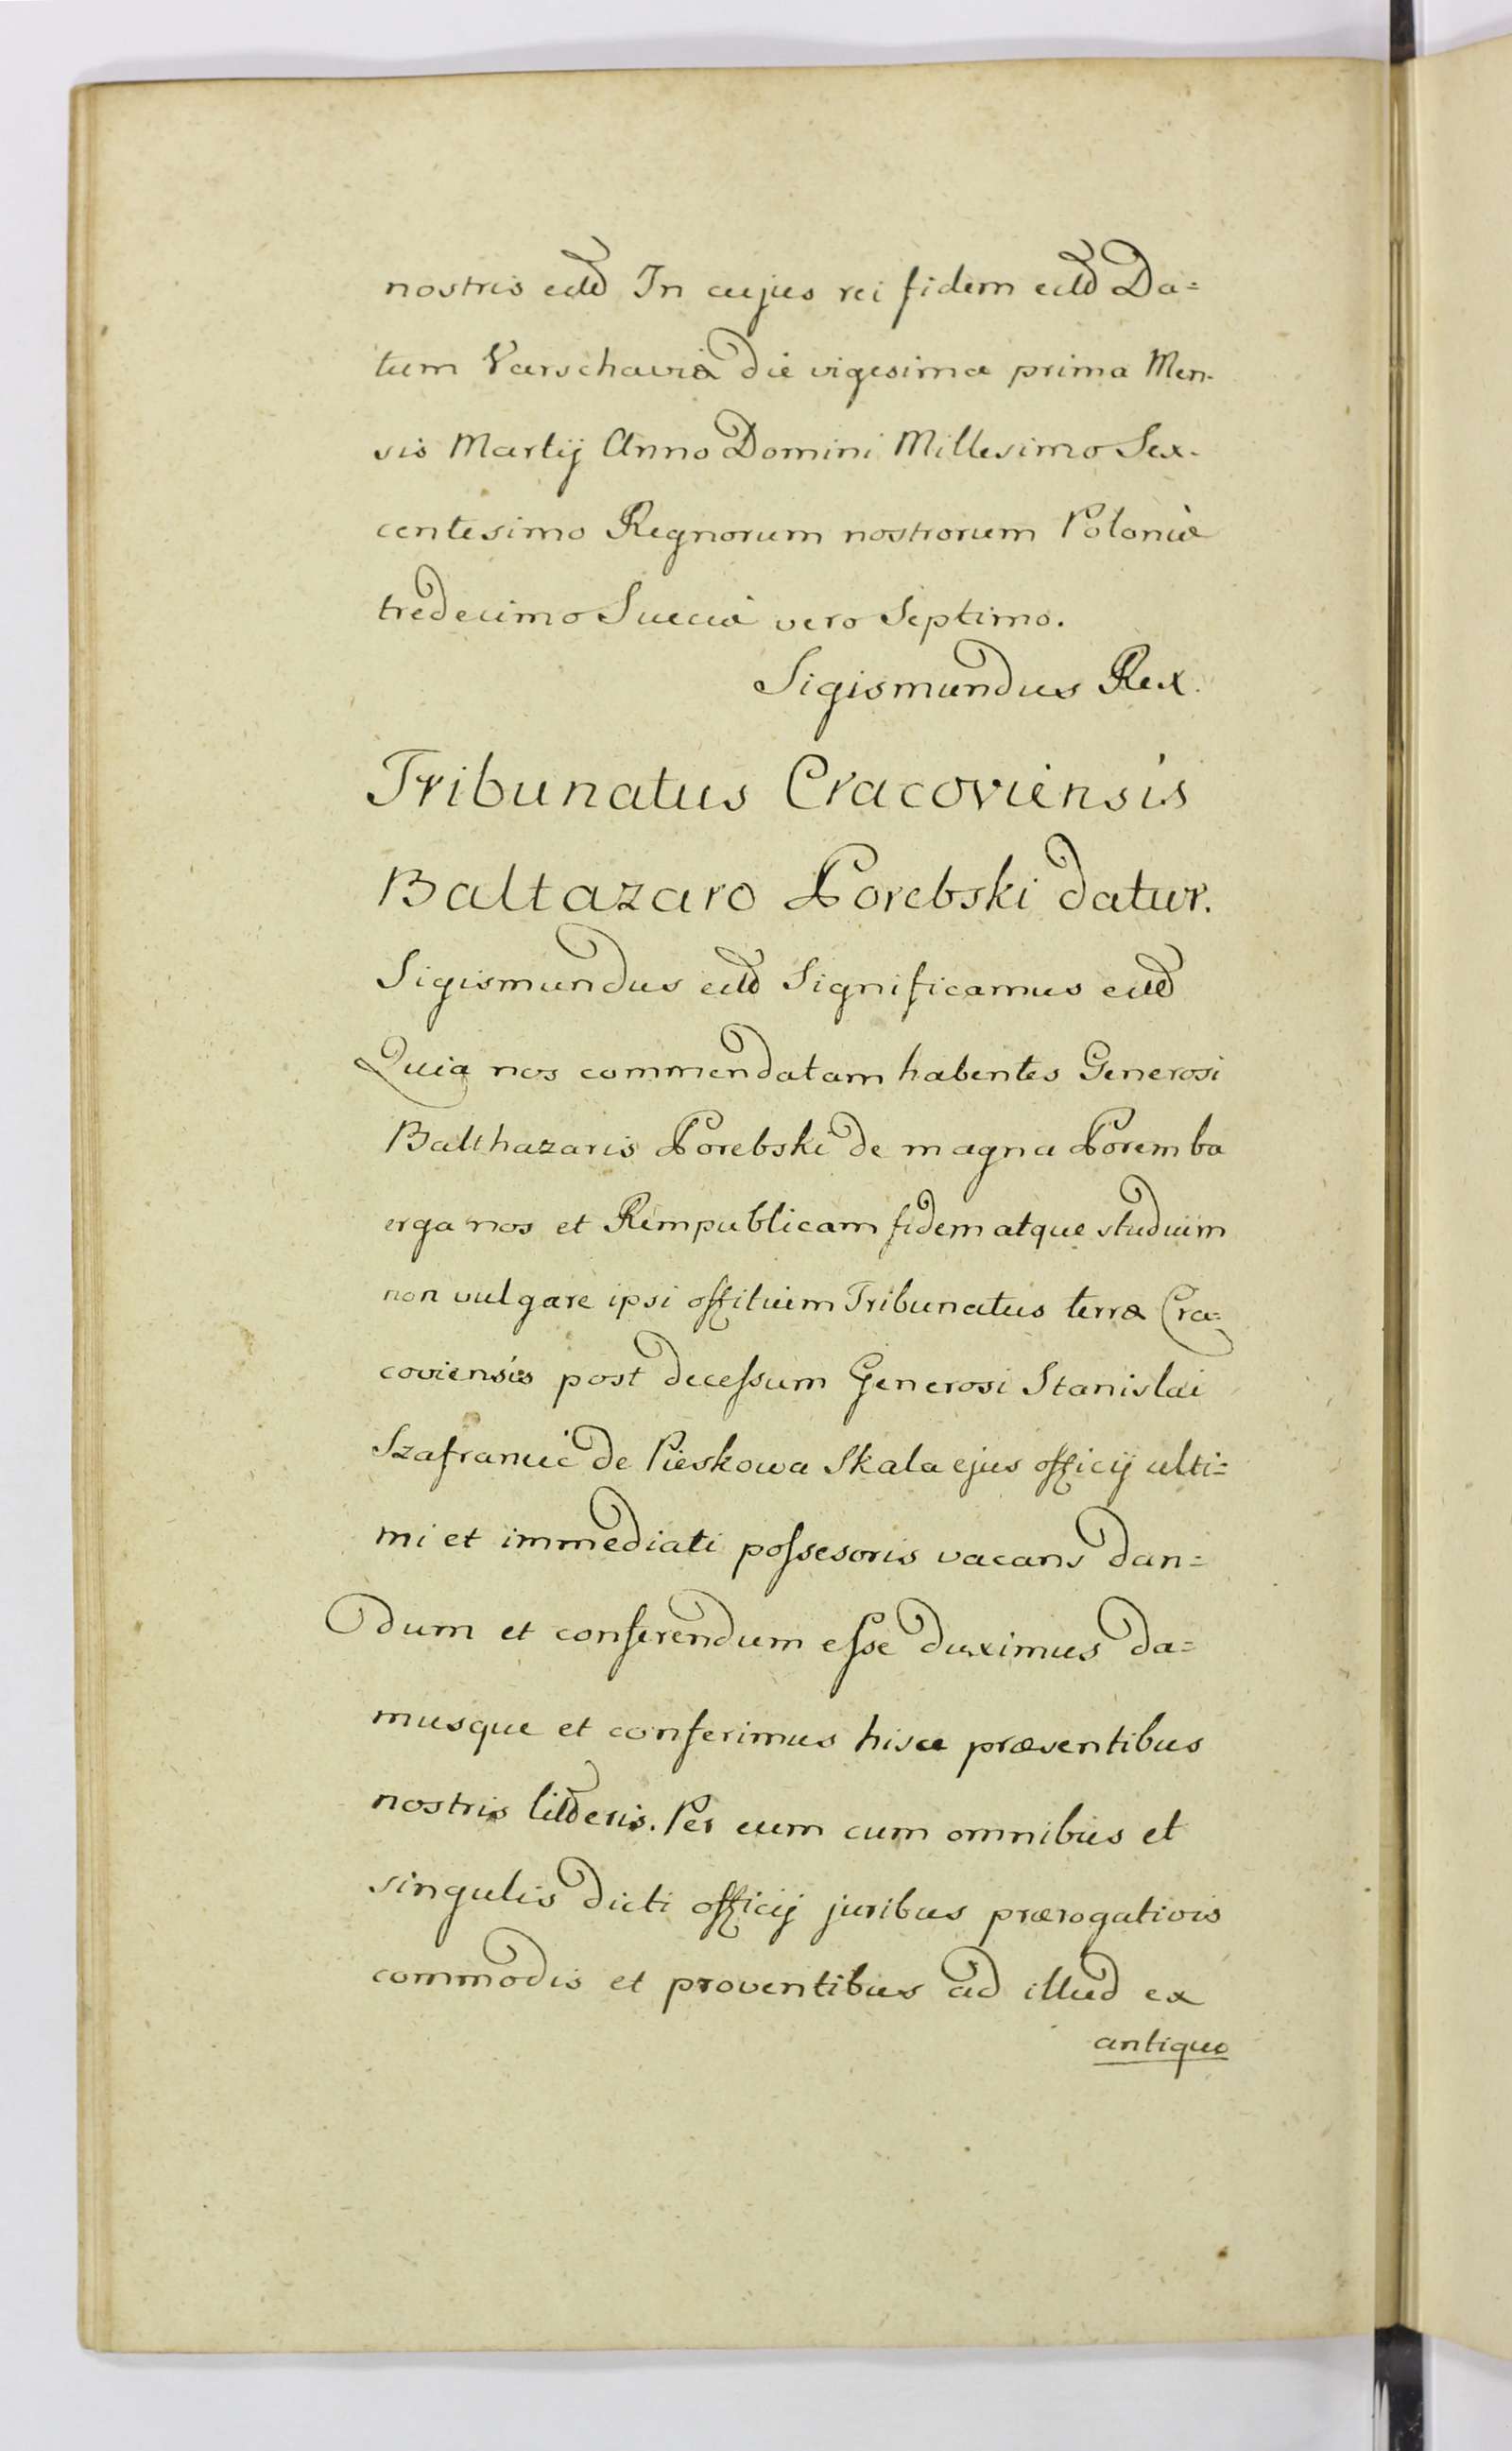 nostris ettd In cujus rei fidem ettd Da=
tum Varschaviæ die vigesima prima Men-
sis Martij Anno Domini Millesimo Sex-
centesimo Regnorum nostrorum Poloniæ
tredecimo Sueciæ vero Septimo.
Sigismundus Rex.
Tribunatus Cracoviensis
Baltazaro Porebski datur.
Sigismundus ettd Significamus ettd
Quia nos commendatam habentes Generosi
Balthazaris Porebski de magna Poremba
erga nos et Rempublicam fidem atque studium
non vulgare ipsi offitium Tribunatus terræ Cra=
coviensis post decessum Generosi Stanislai
Szafraniec de Pieskowa Skala ejus officij ulti=
mi et immediati possesoris vacans dan=
dum et conferendum esse duximus da=
musque et conferimus hisce præsentibus
nostris litteris. Per eum cum omnibus et
singulis dicti officij juribus prærogativis
commodis et proventibus ad illud ex
antiquo